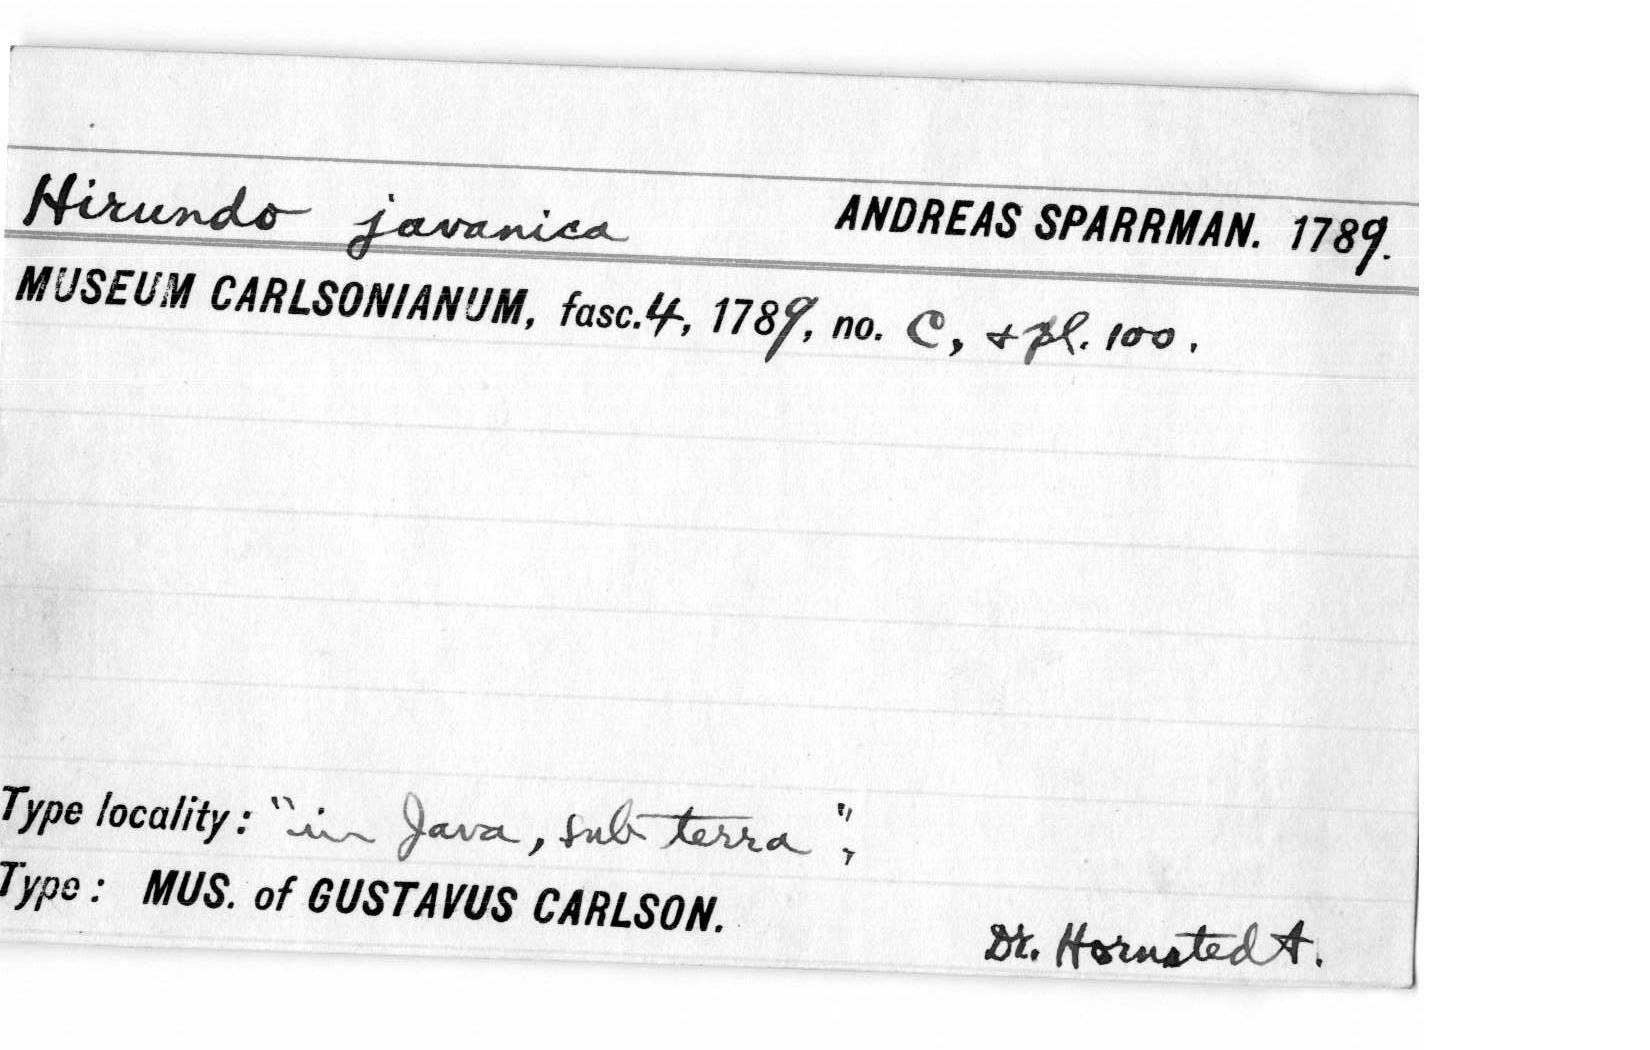 Hirundo javanica ANDREAS SPARRMAN. 1789.
MUSEUM CARLSONIANUM, fasc. 4, 1789, no. C, & pl. 100.
Type locality: "in Java, sub terra";
Type: MUS. of GUSTAVUS CARLSON.
Dr. Hornstedt.